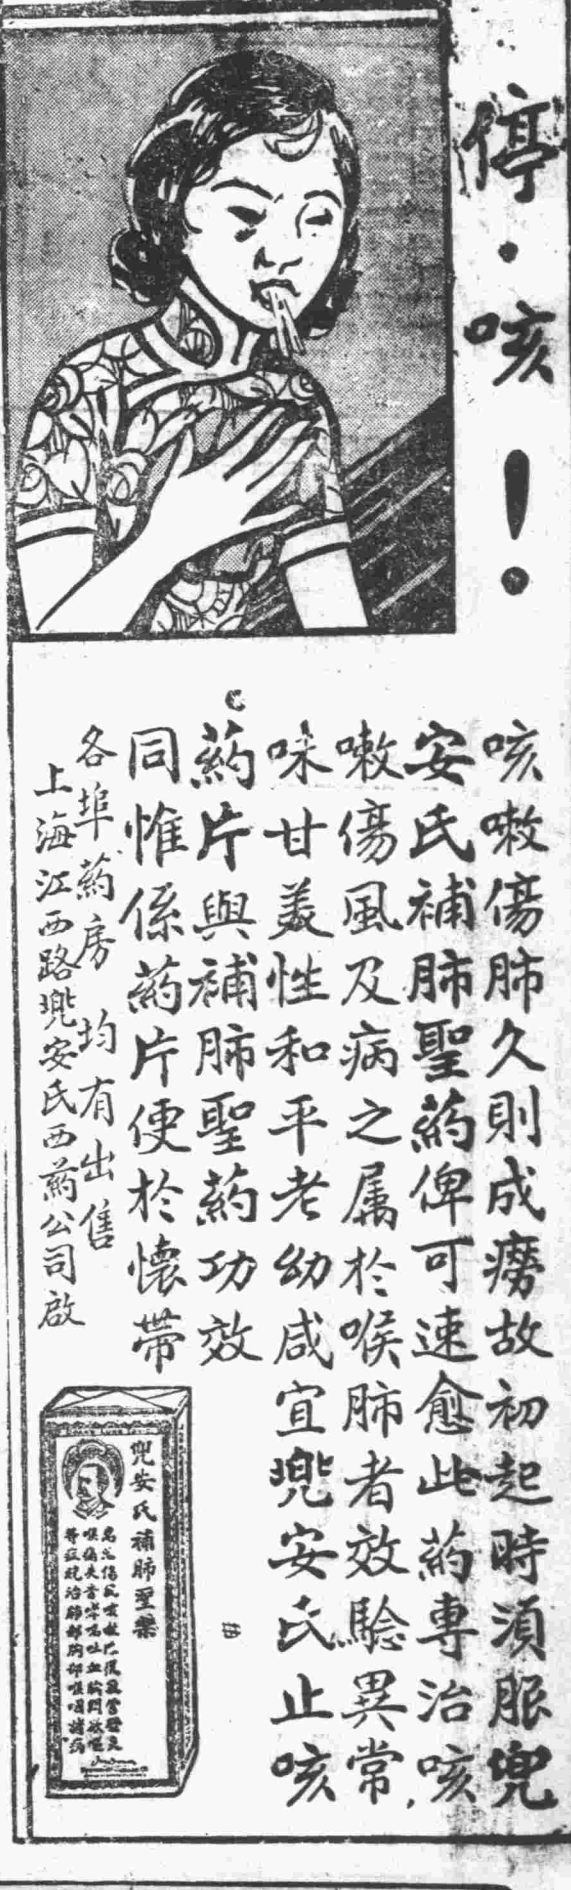 停·咳！
咳嗽傷肺久則成癆故初起時須服兜
安氏補肺聖葯俾可速愈此葯專治咳
嗽傷風及病之属於喉肺者效驗異常
味甘美性和平老幼咸宜兜安氏止咳
葯片與補肺聖葯功效
同惟係葯片便於懷帶
各埠葯房均有出售
上海江西路兜安氏西葯公司啟
兜安氏補肺聖藥